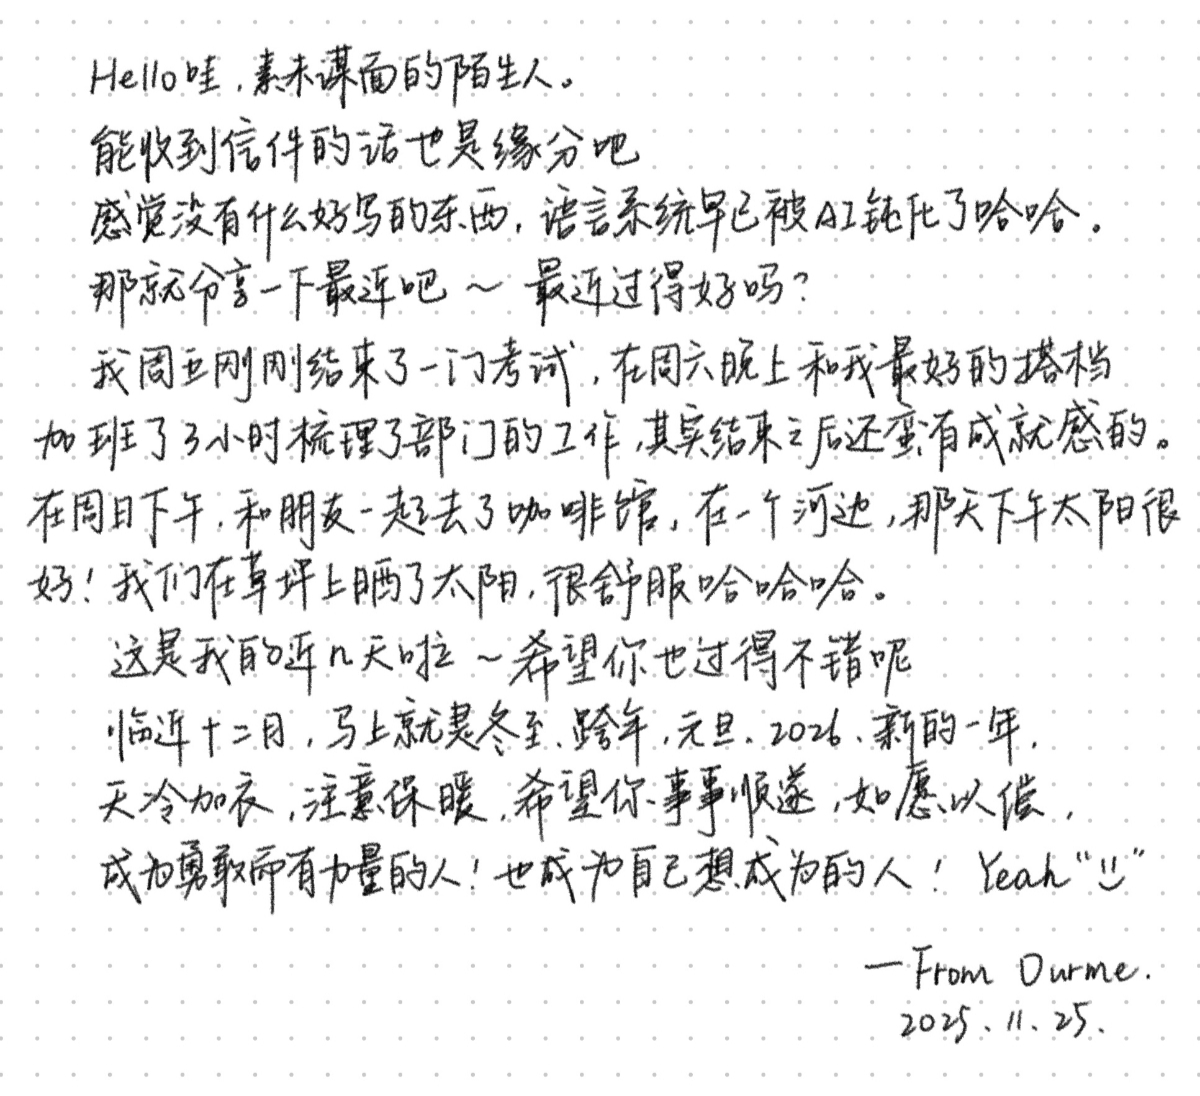 Hello哇,素未谋面的陌生人。
能收到信件的话也是缘分吧
感觉没有什么好写的东西,语言系统早已被AI钝化了哈哈。
那就分享一下最近吧~最近过得好吗?
我周五刚刚结束了一门考试,在周六晚上和我最好的搭档
加班了3小时梳理了部门的工作,其实结束之后还蛮有成就感的。
在周日下午,和朋友一起去了咖啡馆,在一个河边,那天下午太阳很
好!我们在草坪上晒了太阳,很舒服哈哈哈。
这是我的近几天啦~希望你也过得不错呢
临近十二月,马上就是冬至、跨年,元旦、2026、新的一年,
天冷加衣,注意保暖,希望你事事顺遂,如愿以偿,
成为勇敢而有力量的人!也成为自己想成为的人!Yeah"☺"
—From Ourme.
2025.11.25.